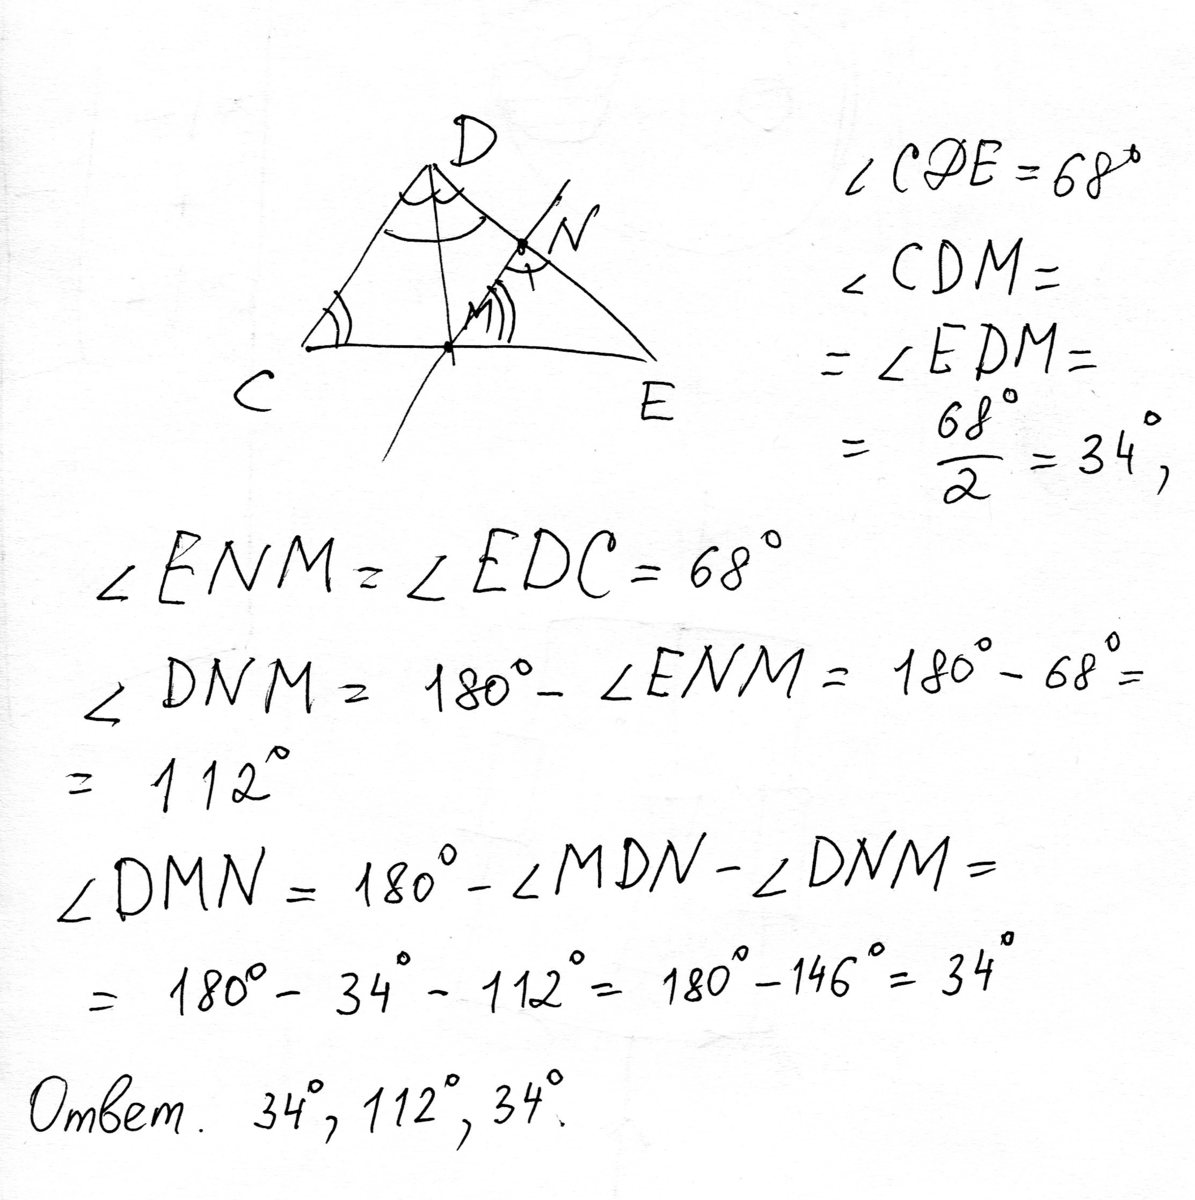 D
N
M
C
E
∠CDE = 68°
∠CDM =
= ∠EDM =
= 68°/2 = 34°,
∠ENM = ∠EDC = 68°
∠DNM = 180° - ∠ENM = 180° - 68° =
= 112°
∠DMN = 180° - ∠MDN - ∠DNM =
= 180° - 34° - 112° = 180° - 146° = 34°
Ответ. 34°, 112°, 34°.